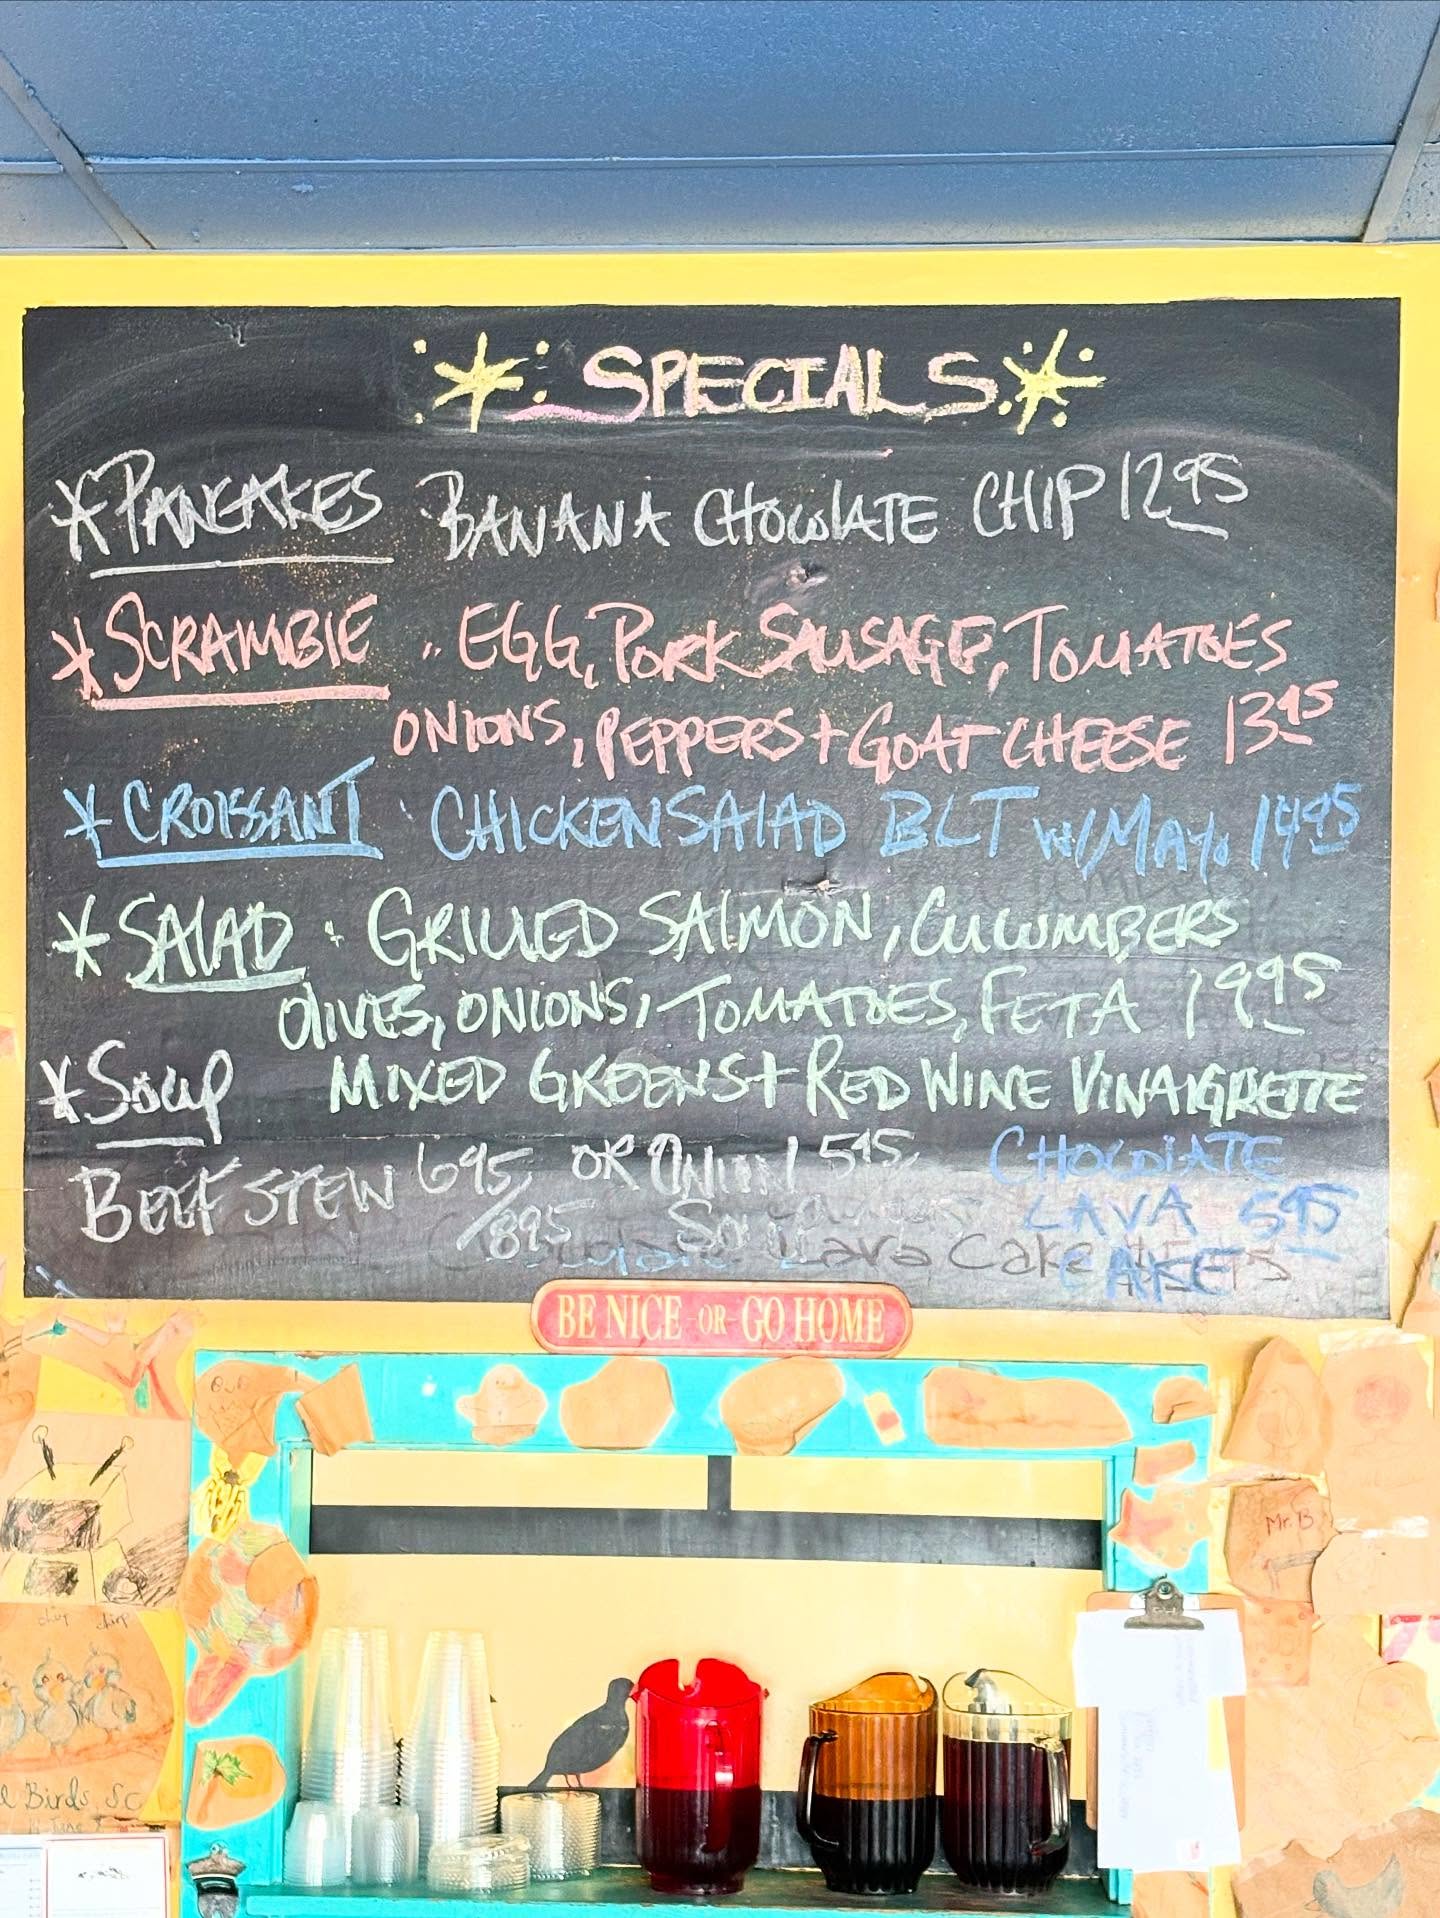 SPECIALS
*PANCAKES BANANA CHOCOLATE CHIP 12 95
*SCRAMBLE .. EGG, PORK SAUSAGE, TOMATOES
ONIONS, PEPPERS + GOAT CHEESE 13 95
*CROISSANT · CHICKEN SALAD BLT W/MAYO 14 95
*SALAD · GRILLED SALMON, CUCUMBERS
OLIVES, ONIONS, TOMATOES, FETA 19 95
MIXED GREENS + RED WINE VINAIGRETTE
*SOUP
BEEF STEW 6 95 /8 95 OR ONION 5 95
CHOCOLATE
LAVA 5 95
CAKE
Lava Cake
BE NICE -OR- GO HOME
Mr. B
chirp chirp
Birds